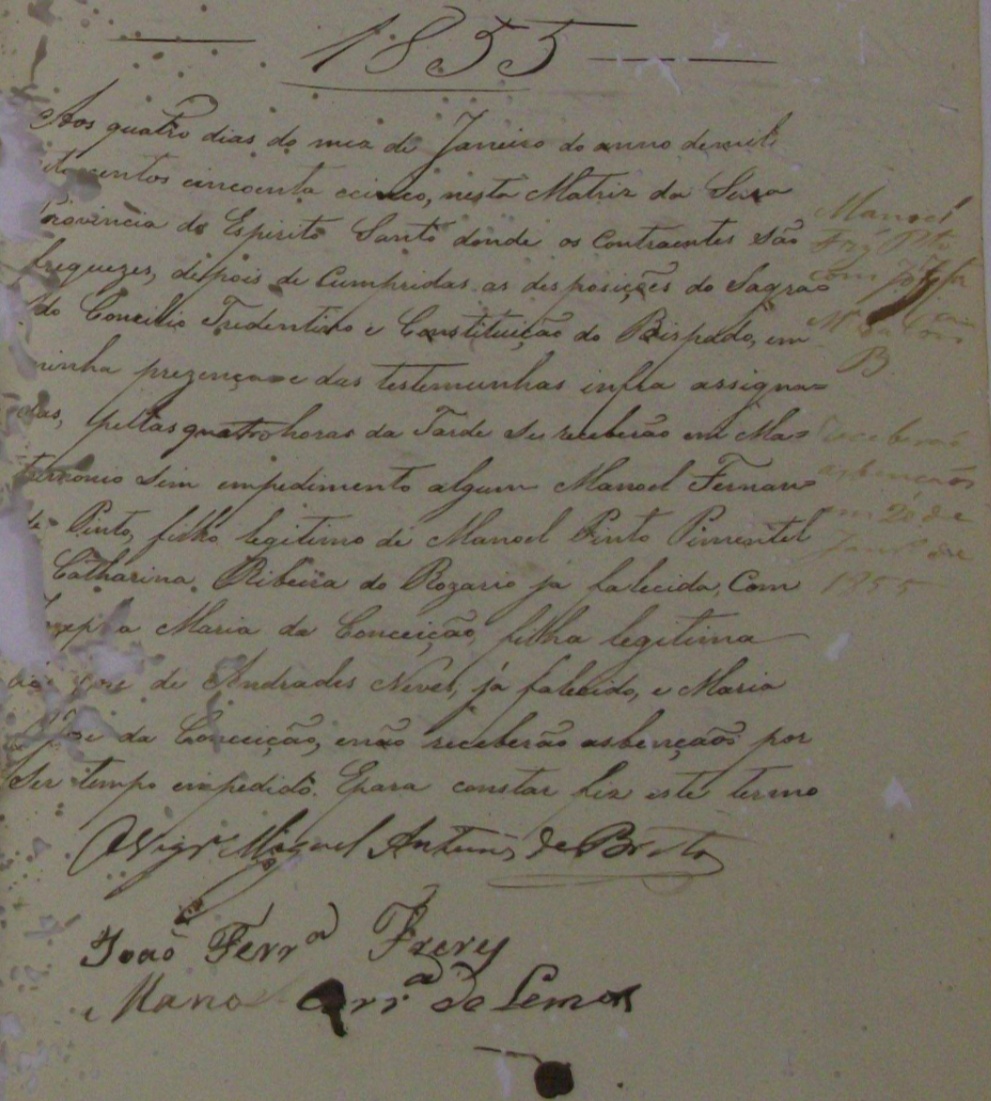 1855
Aos quatro dias do mez de Janeiro do anno demil
centos cincoenta ecinco, nesta Matriz da Serra
Provincia do Espirito Santo donde os Contraentes são
freguezes, depois de Cumpridas as desposições do Sagra=
do Concilio Tredentino e Constituição do Bispado, em
minha prezença e das testemunhas infra assigna=
das, pellas quatro horas da Tarde se receberão em Ma=
terimonio Sem empedimento algum Manoel Fernan=
Pinto, filho legitimo de Manoel Pinto Pimentel
Catharina Ribeira do Rozario já falecida, Com
Maria da Conceição, filha legitima
de Andrades Neves, já falecido, e Maria
da Conceição, enão receberão asbençaõs por
Ser tempo empedido. Epara constar fiz este termo
OVigrº Miguel Antunes de Brito
João Ferrª Frery
Manoel Corrª de Lemos
Manoel
Com
B
receberaõ
asbençaõs
em 20 de
Janrº de
1855